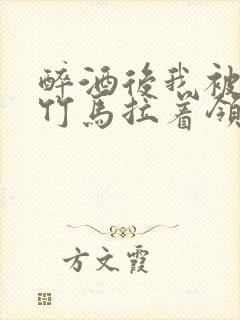 醉酒後我被
竹馬拉着領
方文霞